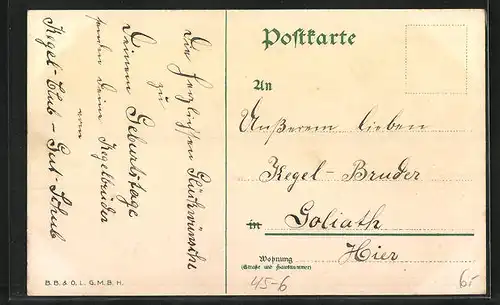 Die herzlichsten Glückwünsche
zu
Deinem Geburtstage
senden deine Kegelbrüder
vom
Kegel-Club-Gut-Schub
B. B. & O. L. G. M. B. H.
Postkarte
An
Unserem lieben
Kegel-Bruder
in Goliath
Hier
Wohnung
(Straße und Hausnummer)
45-6
6.-